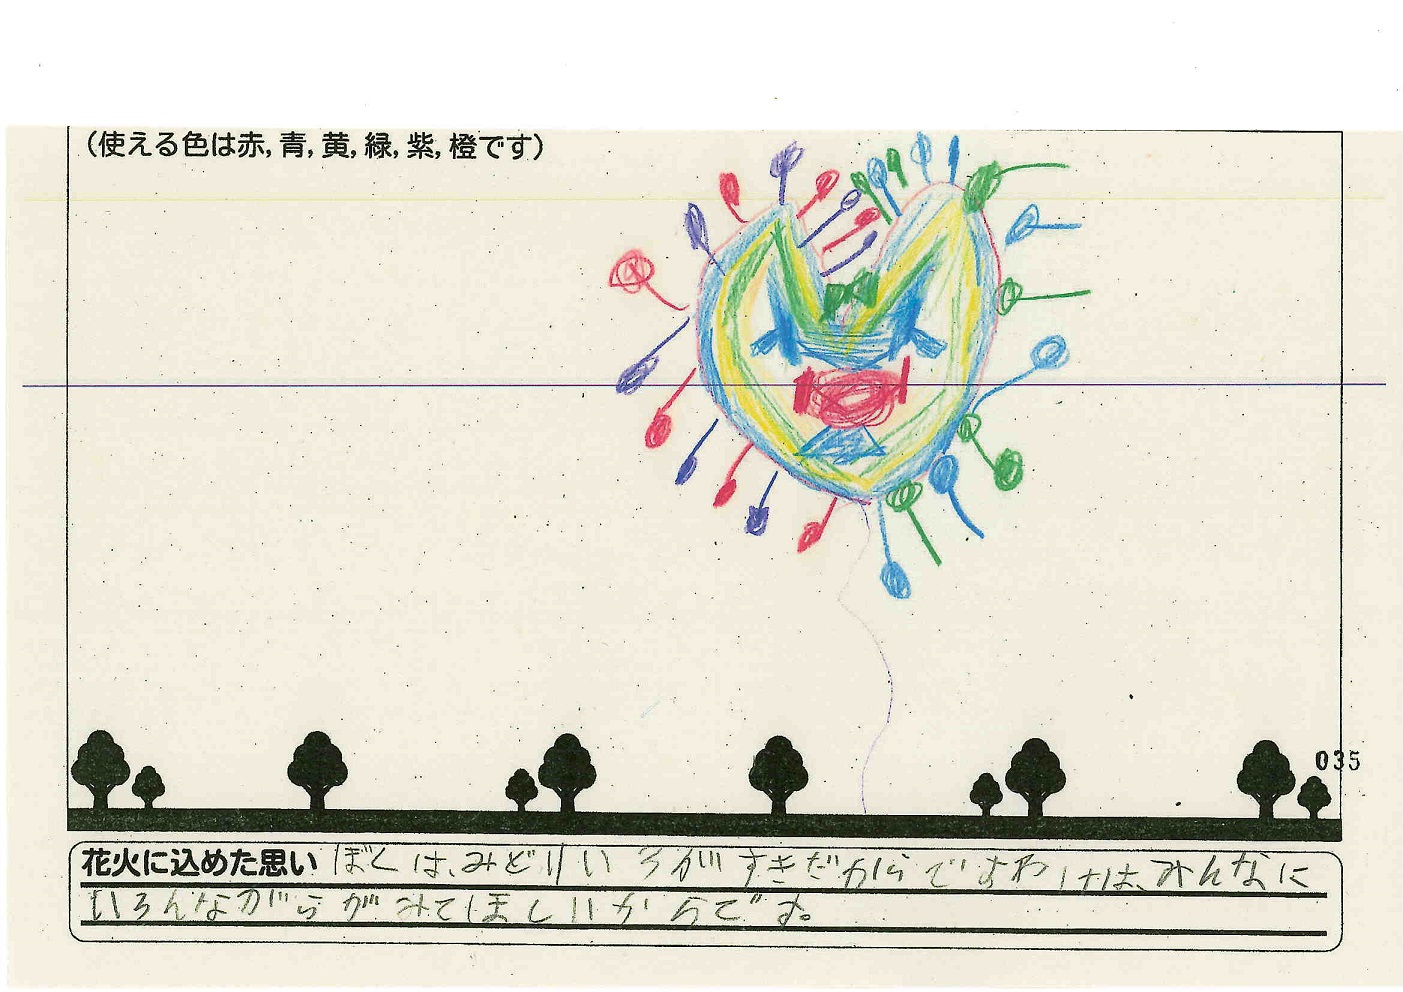 (使える色は赤, 青, 黄, 緑, 紫, 橙です)
035
花火に込めた思い ぼくは、みどりいろがすきだからですわけは、みんなに
いろんながらがみてほしいからです。